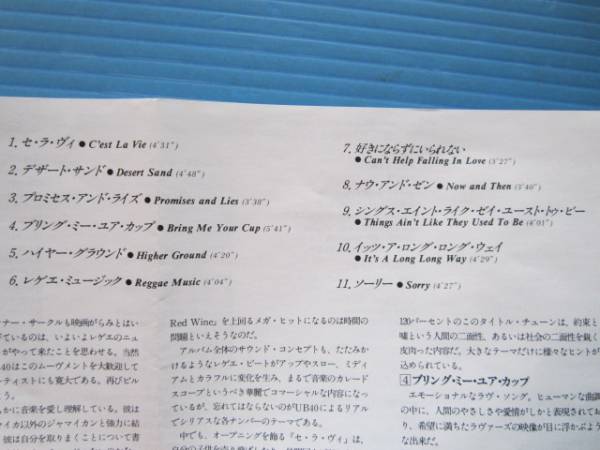 1. セ・ラ・ヴィ ● C'est La Vie (4'31")
2. デザート・サンド ● Desert Sand (4'48")
3. プロミセス・アンド・ライズ ● Promises and Lies (3'38")
4. ブリング・ミー・ユア・カップ ● Bring Me Your Cup (5'41")
5. ハイヤー・グラウンド ● Higher Ground (4'20")
6. レゲエ・ミュージック ● Reggae Music (4'04")
7. 好きにならずにいられない
● Can't Help Falling In Love (3'27")
8. ナウ・アンド・ゼン ● Now and Then (3'40")
9. シングス・エイント・ライク・ゼイ・ユースト・トゥ・ビー
● Things Ain't Like They Used To Be (4'01")
10. イッツ・ア・ロング・ロング・ウェイ
● It's A Long Long Way (4'29")
11. ソーリー ● Sorry (4'27")
ナー・サークルも映画がらみとはい
ているのは、いよいよレゲエのニュ
がやって来たことを思わせる。当然
40はこのムーヴメントを大歓迎して
ティストにも寛大である。再びビル
かに音楽を愛し理解している。彼は
イカ以外のジャマイカンと強力に結
彼は自分を取りまくことについて書
Red Wine』を上回るメガ・ヒットになるのは時間の
問題といえそうなのだ。
アルバム全体のサウンド・コンセプトも、たたみか
けるようなレゲエ・ビートがアップやスロー、ミディ
アムとカラフルに変化を生み、まるで音楽のカレード
スコープというべき華麗でコマーシャルな内容になっ
ているが、忘れてはならないのがUB40によるリアル
でシリアスな各ナンバーのテーマである。
中でも、オープニングを飾る『セ・ラ・ヴィ』は、
120パーセントのこのタイトル・チューンは、約束と
嘘という人間の二面性、あるいは社会の二面性を鋭く
皮肉った内容だ。大きなテーマだけに様々なヒントが
込められている。
4 ブリング・ミー・ユア・カップ
エモーショナルなラヴ・ソング。ヒューマンな曲調
の中に、人間のやさしさや愛情がしかと表現されてお
り、希望に満ちたラヴァーズの映像が目に浮かぶよう
な出来だ。